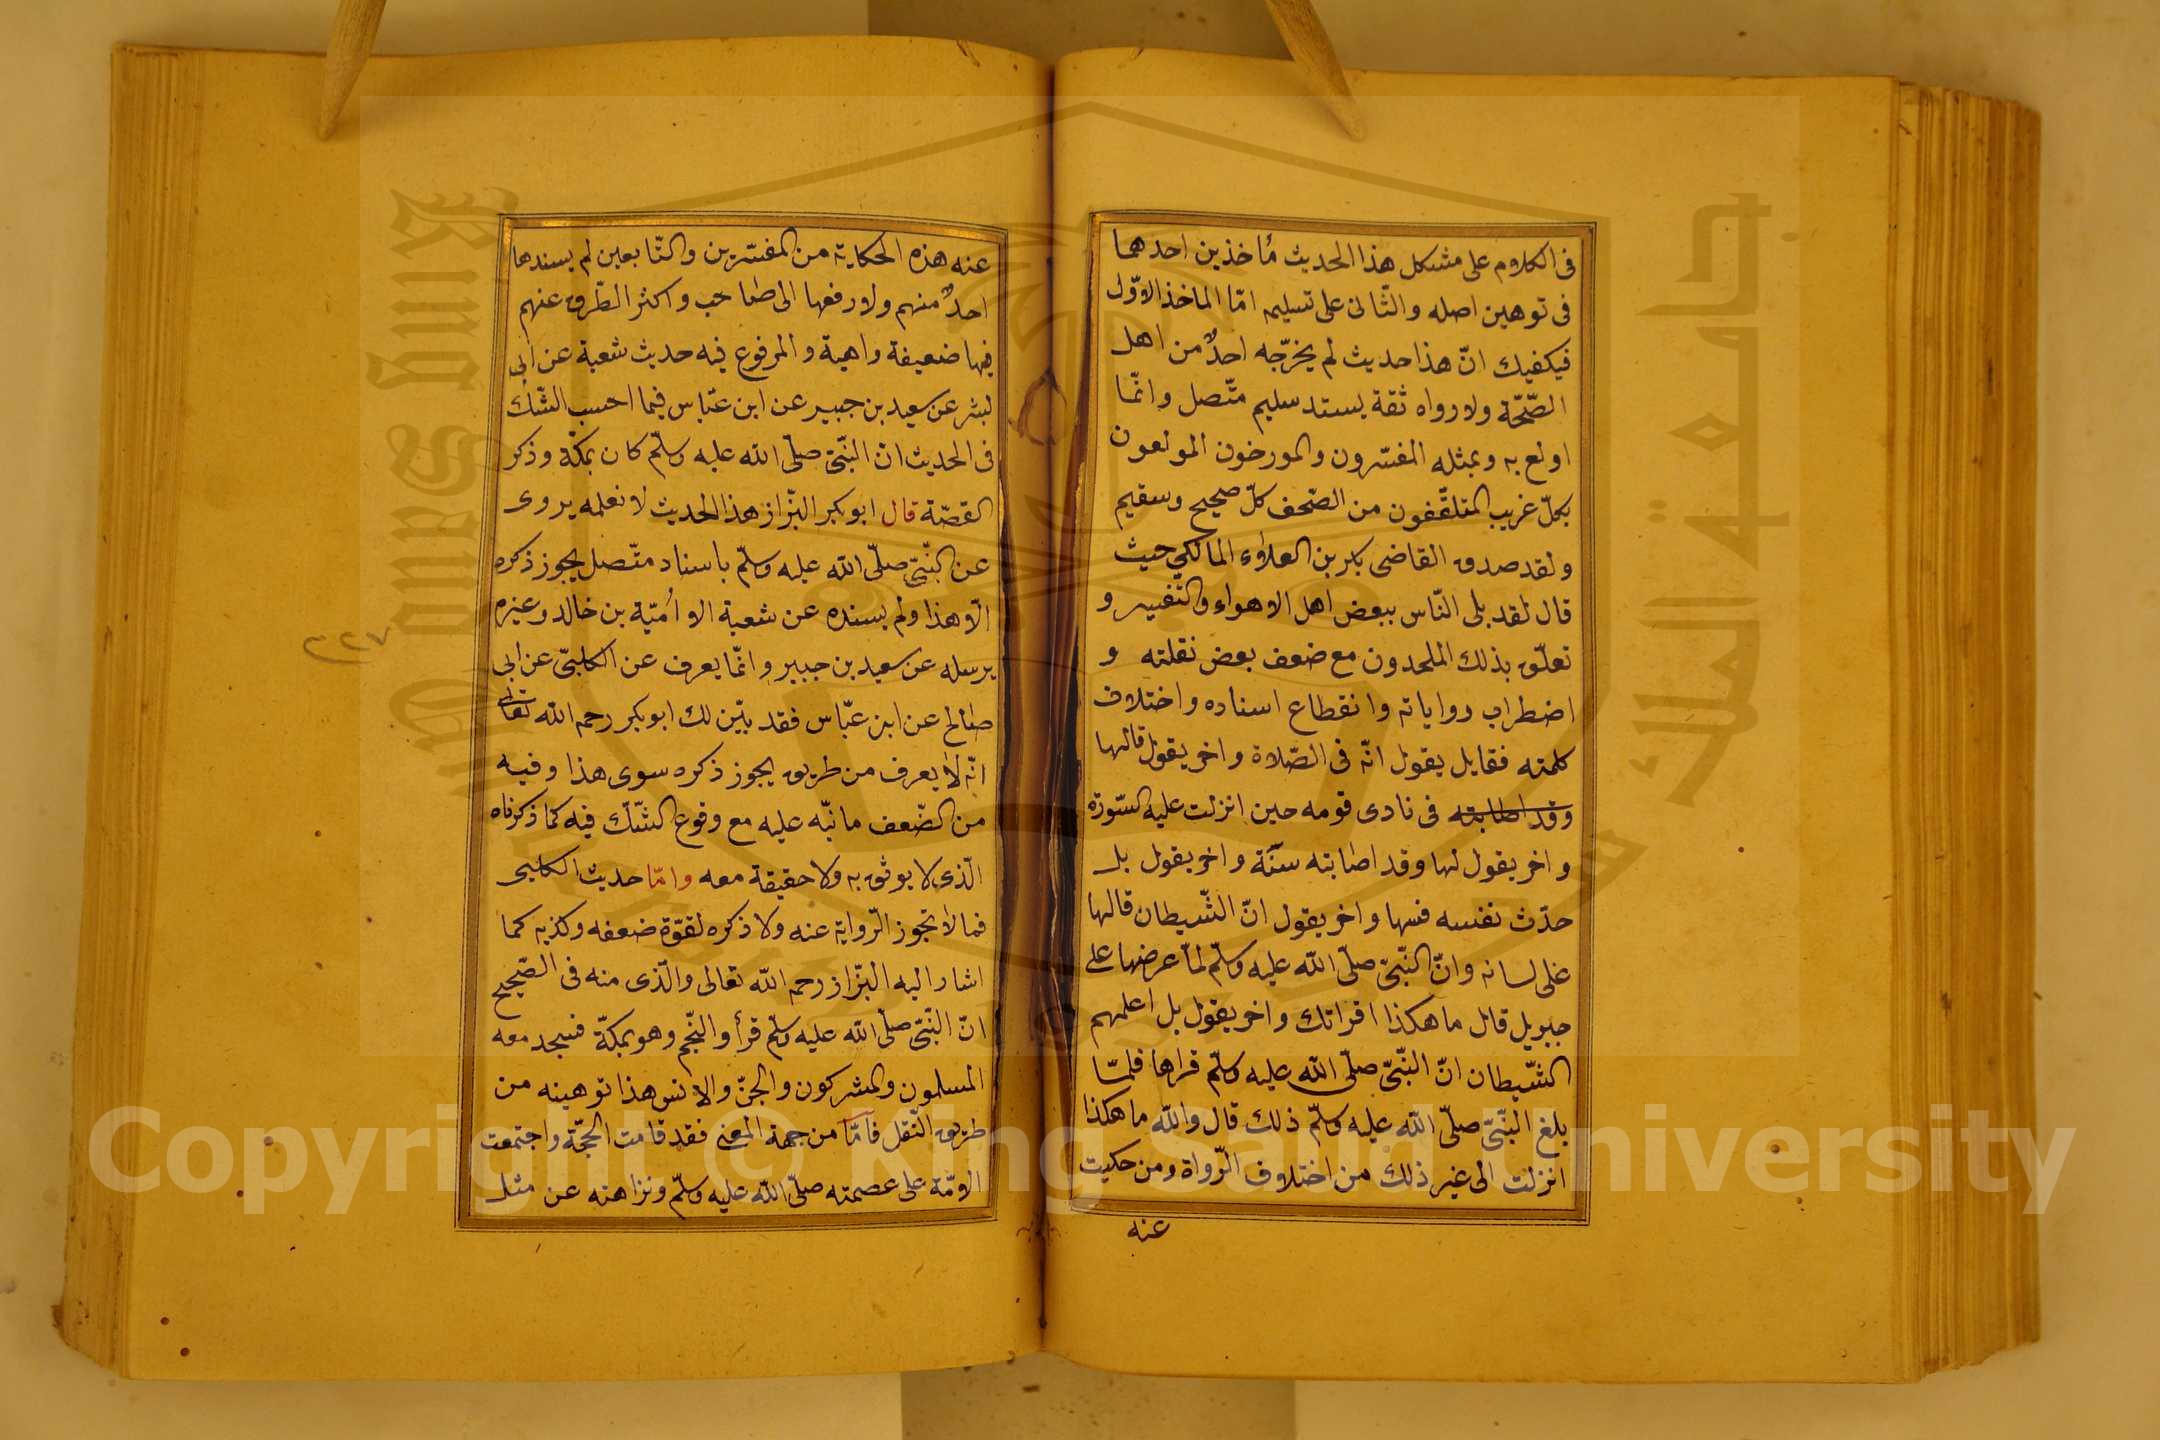 فى الكلام على مشكل هذا الحديث مأخذين احدهما
فى توهين اصله والثّانى على تسليمه امّا الماخذ الاوّل
فيكفيك انّ هذا حديث لم يخرّجه احدٌ من اهل
الصّحّة ولا رواه ثقة بسند سليم متّصل وانّما
اولع به وبمثله المفسّرون والمورخون المولعون
بكلّ غريب المتلقّفون من الصّحف كلّ صحيح وسقيم
ولقد صدق القاضى بكر بن العلاء المالكي حيث
قال لقد بلى النّاس ببعض اهل الاهواء والتّفسير و
تعلّق بذلك الملحدون مع ضعف بعض نقلته و
اضطراب رواياته وانقطاع اسناده واختلاف
كلمته فقايل يقول انّه فى الصّلاة واخر يقول قالها
وقد اصابته فى نادى قومه حين انزلت عليه السّورة
واخر يقول لها وقد اصابته سنَة واخر يقول بل
حدّث نفسه فسها واخر يقول انّ الشّيطان قالها
على لسانه وانّ النّبىّ صلّى الله عليه وسلّم لمّا عرضها على
جبريل قال ما هكذا اقراتك واخر يقول بل اعلمهم
الشّيطان انّ النّبىّ صلّى الله عليه وسلّم قراها فلمّا
بلغ النّبىّ صلّى الله عليه وسلّم ذلك قال والله ما هكذا
انزلت الى غير ذلك من اختلاف الرّواة ومن حكيت
عنه
عنه هذه الحكاية من المفسّرين والتّابعين لم يسندها
احدٌ منهم ولا رفعها الى صاحب واكثر الطّرق عنهم
فيها ضعيفة واهية والمرفوع فيه حديث شعبة عن ابى
بشر عن سعيد بن جبير عن ابن عبّاس فيما احسب الشّك
فى الحديث انّ النّبىّ صلّى الله عليه وسلّم كان بمكّة وذكر
القصّة قال ابوبكر البزّاز هذا الحديث لا نعلمه يروى
عن النّبىّ صلّى الله عليه وسلّم باسناد متّصل يجوز ذكره
الّا هذا ولم يسنده عن شعبة الا اُميّة بن خالد وغيره
يرسله عن سعيد بن جبير وانّما يعرف عن الكلبىّ عن ابى
صالح عن ابن عبّاس فقد بيّن لك ابوبكر رحمه الله تعالى
انّه لا يعرف من طريق يجوز ذكره سوى هذا وفيه
من الضّعف ما نبّه عليه مع وقوع الشّكّ فيه كما ذكرناه
الّذى لا يوثق به ولا حقيقة معه وامّا حديث الكلبى
فما لا تجوز الرّواية عنه ولا ذكره لقوّة ضعفه وكذبه كما
اشار اليه البزّاز رحمه الله تعالى والّذى منه فى الصّحيح
انّ النّبىّ صلّى الله عليه وسلّم قرأ والنّجم وهو بمكّة فسجد معه
المسلمون والمشركون والجنّ والانس هذا توهينه من
طريق النّقل فامّا من جهة المعنى فقد قامت الحجّة واجتمعت
الامّة على عصمته صلّى الله عليه وسلّم ونزاهته عن مثل
٢٢٧
جامعة الملك سعود
King Saud University
Copyright © King Saud University